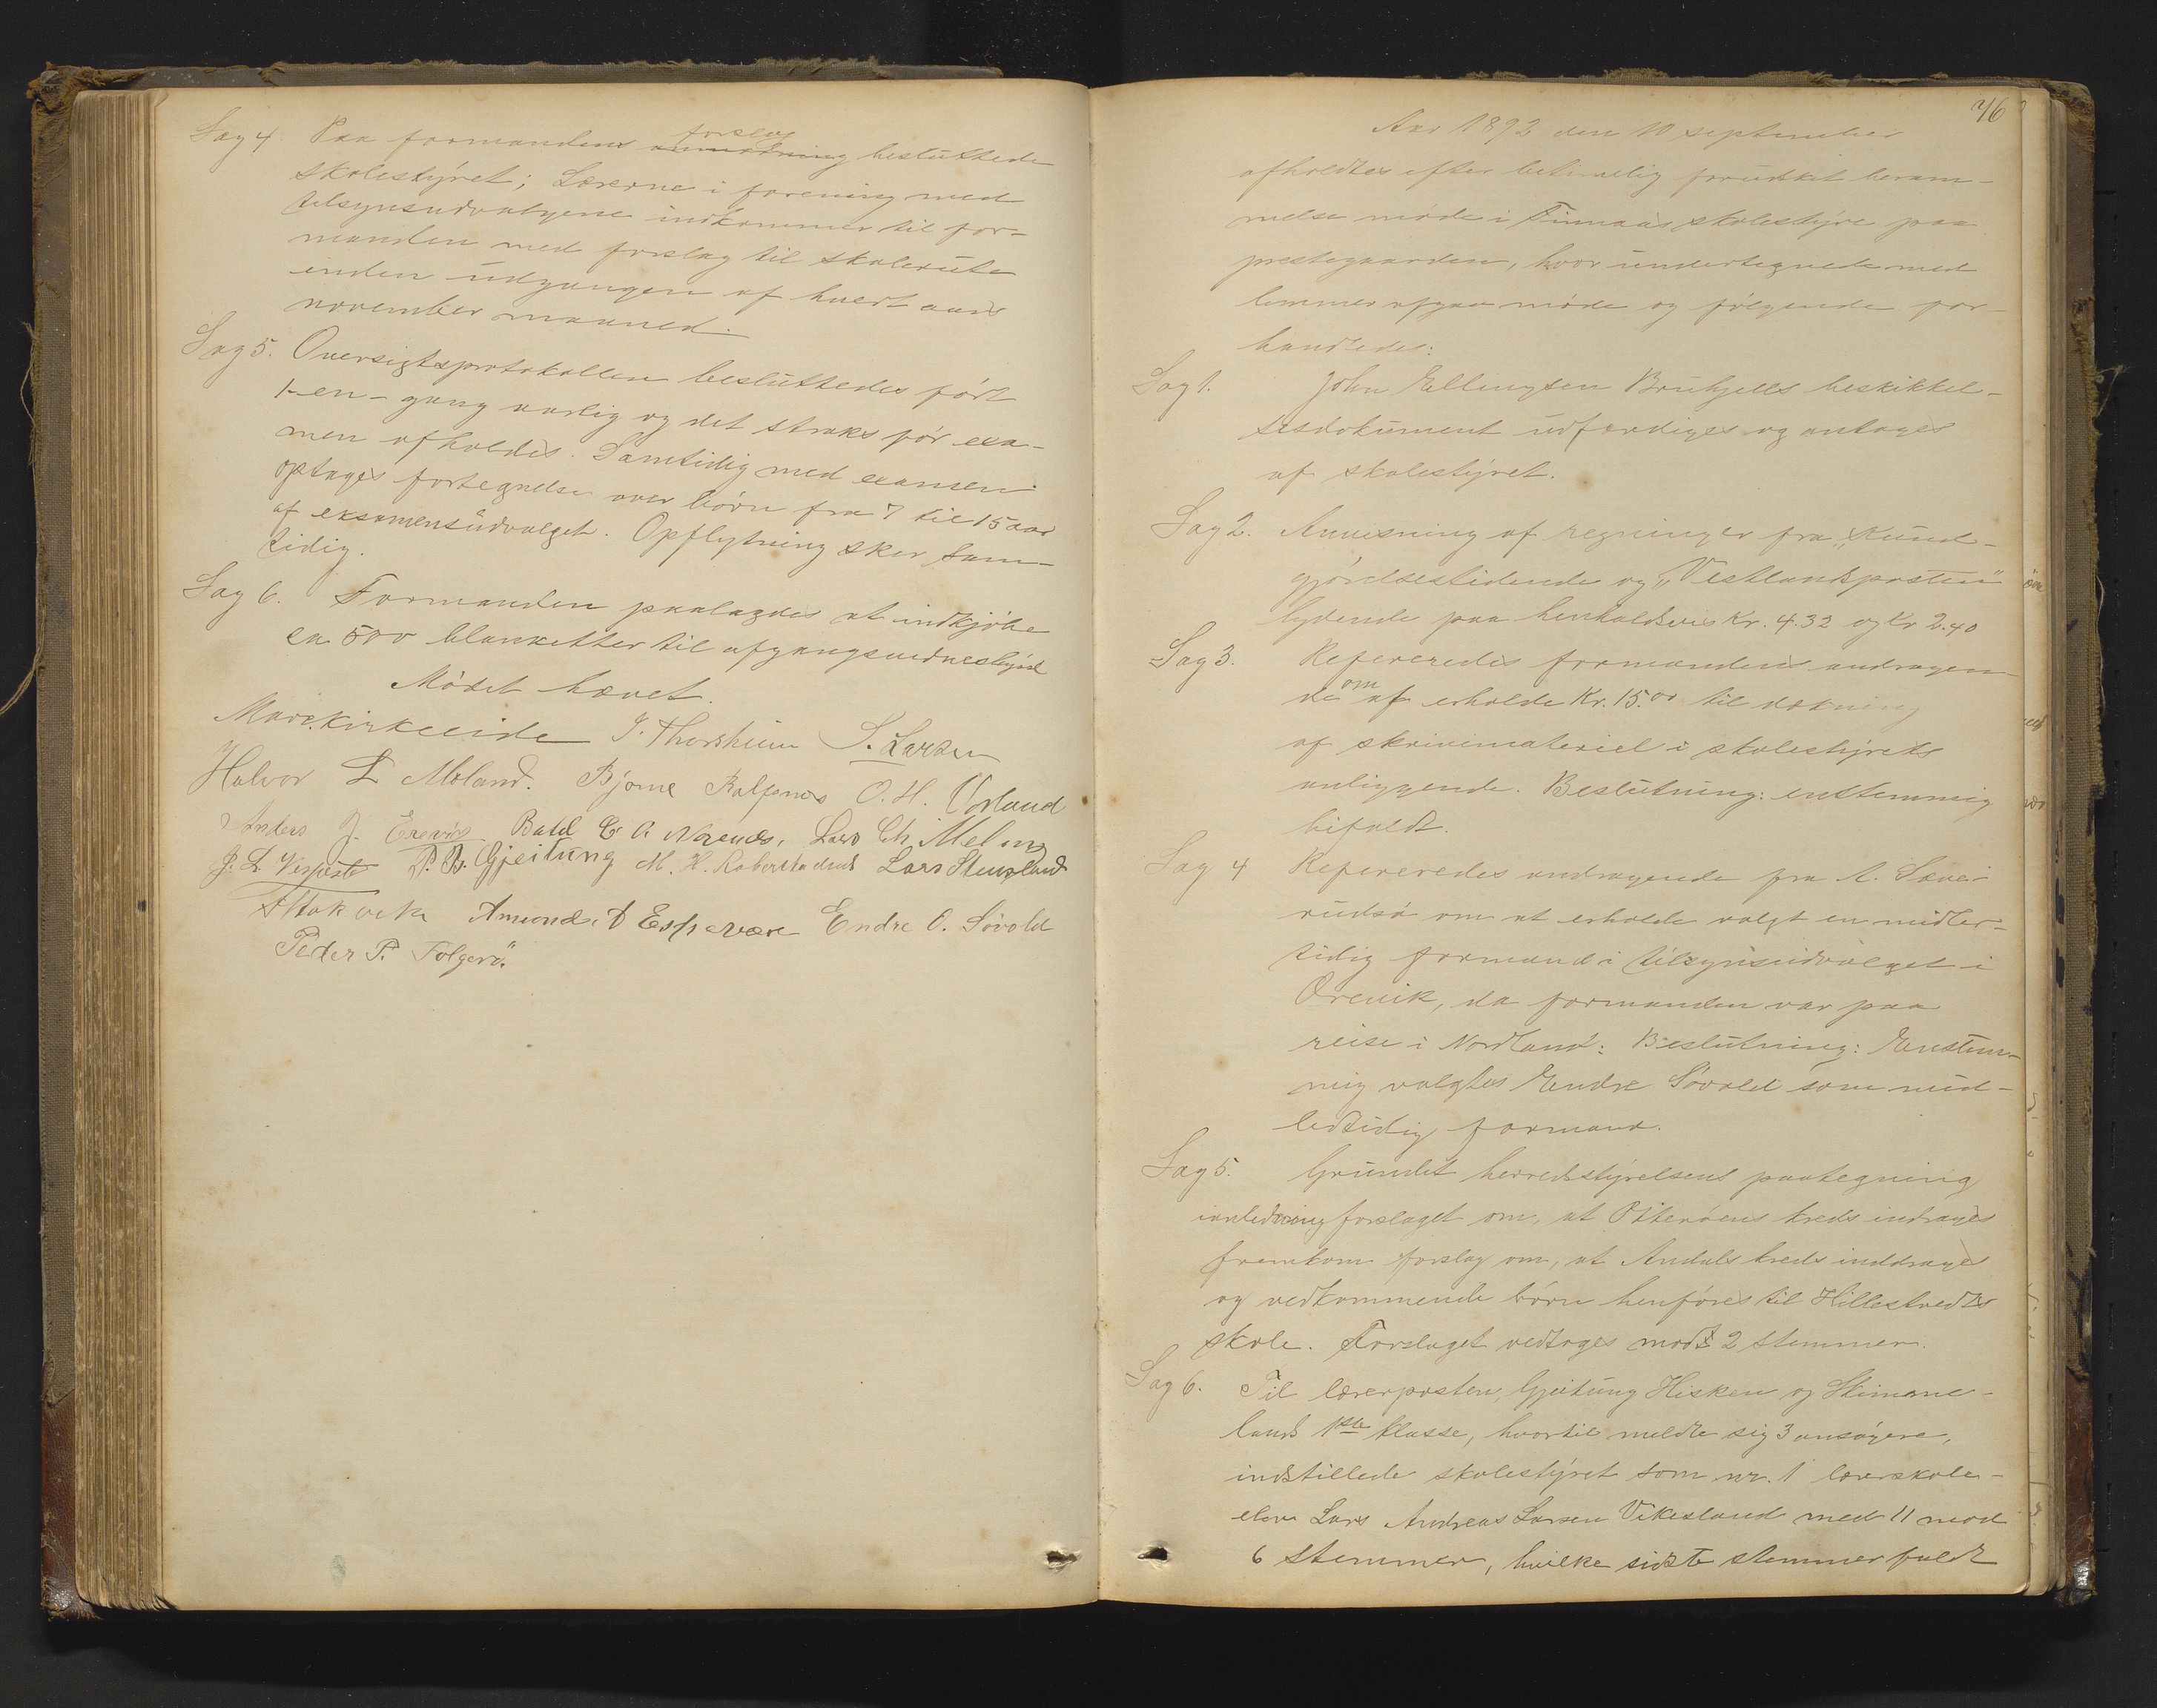 Sag 4. Paa formandens anmodning forslag besluttede
skolestyret; Lærerne i forening med
tilsynsudvalgene indkommer til for-
manden med forslag til skolerute
inden udgangen af hvert aars
november maaned.
Sag 5. Oversigtsprotokollen besluttedes ført
1-en-gang aarlig og det straks før exa-
men afholdes. Samtidig med examen
optages fortegnelse over børn fra 7 til 15 aar
af eksamensudvalget. Opflytning sker sam-
tidig.
Sag 6. Formanden paalagdes at indkjøbe
ca 500 blanketter til afgangsvidnesbyrd
Mødet hævet.
Marc. Kirkeeide J. Thorsheim S. Larsen
Halvor L Moland. Bjorne Kalfsnes O. H. Vorland
Anders J. Erevig Botel C. A. Norevaas, Lars Ch. Meling
J. L. Vespestø P. B. Gjeitung M. H. Robertstadvik Lars Stensland
A Stokvik Amund. A Espevære Endre O. Søvold
Peder P. Folgerö.
76
Aar 1892 den 10 september
afholdtes efter betimelig forudskit beram-
melse møde i Finnaas skolestyre paa
prestegaarden, hvor undertegnede med
lemmer afgav møde og følgende for-
handledes:
Sag 1. John Ellingsen Bruhjells beskikkel-
sesdokument udfærdiges og antages
af skolestyret.
Sag 2. Anvisning af regninger fra „Kund-
gjørelsestidende og „Vestlandsposten"
lydende paa henholdsvis Kr. 4.32 og Kr 2.40
Sag 3. Refereredes formandens andragen-
de om at erholde Kr. 15.00 til dækning
af skrivemateriel i skolestyrets
anliggende. Beslutning: enstemmig
bifaldt.
Sag 4 Refereredes andragende fra A. Sæve-
rudsø om at erholde valgt en midler-
tidig formand i tilsynsudvalget i
Ørevik, da formanden var paa
reise i Nordland: Beslutning: Enstem-
mig valgtes Endre Søvold som mid-
lertidig formand.
Sag 5. Grundet herredstyrelsens paategning
i anledning forslaget om, at Otterøens kreds indrages
fremkom forslag om, at Andals kreds inddrages
og vedkommende børn henføres til Hillestvedts
skole. Forslaget vedtoges mod 2 stemmer.
Sag 6. Til lærerposten, Gjeitung Hisken og Skimme-
lands 1ste klasse, hvortil meldte sig 3 ansøgere,
indstillede skolestyret som nr. 1 lærerskole-
elev Lars Andreas Larsen Vikesland med 11 mod
6 stemmer, hvilke sidste stemmer faldt